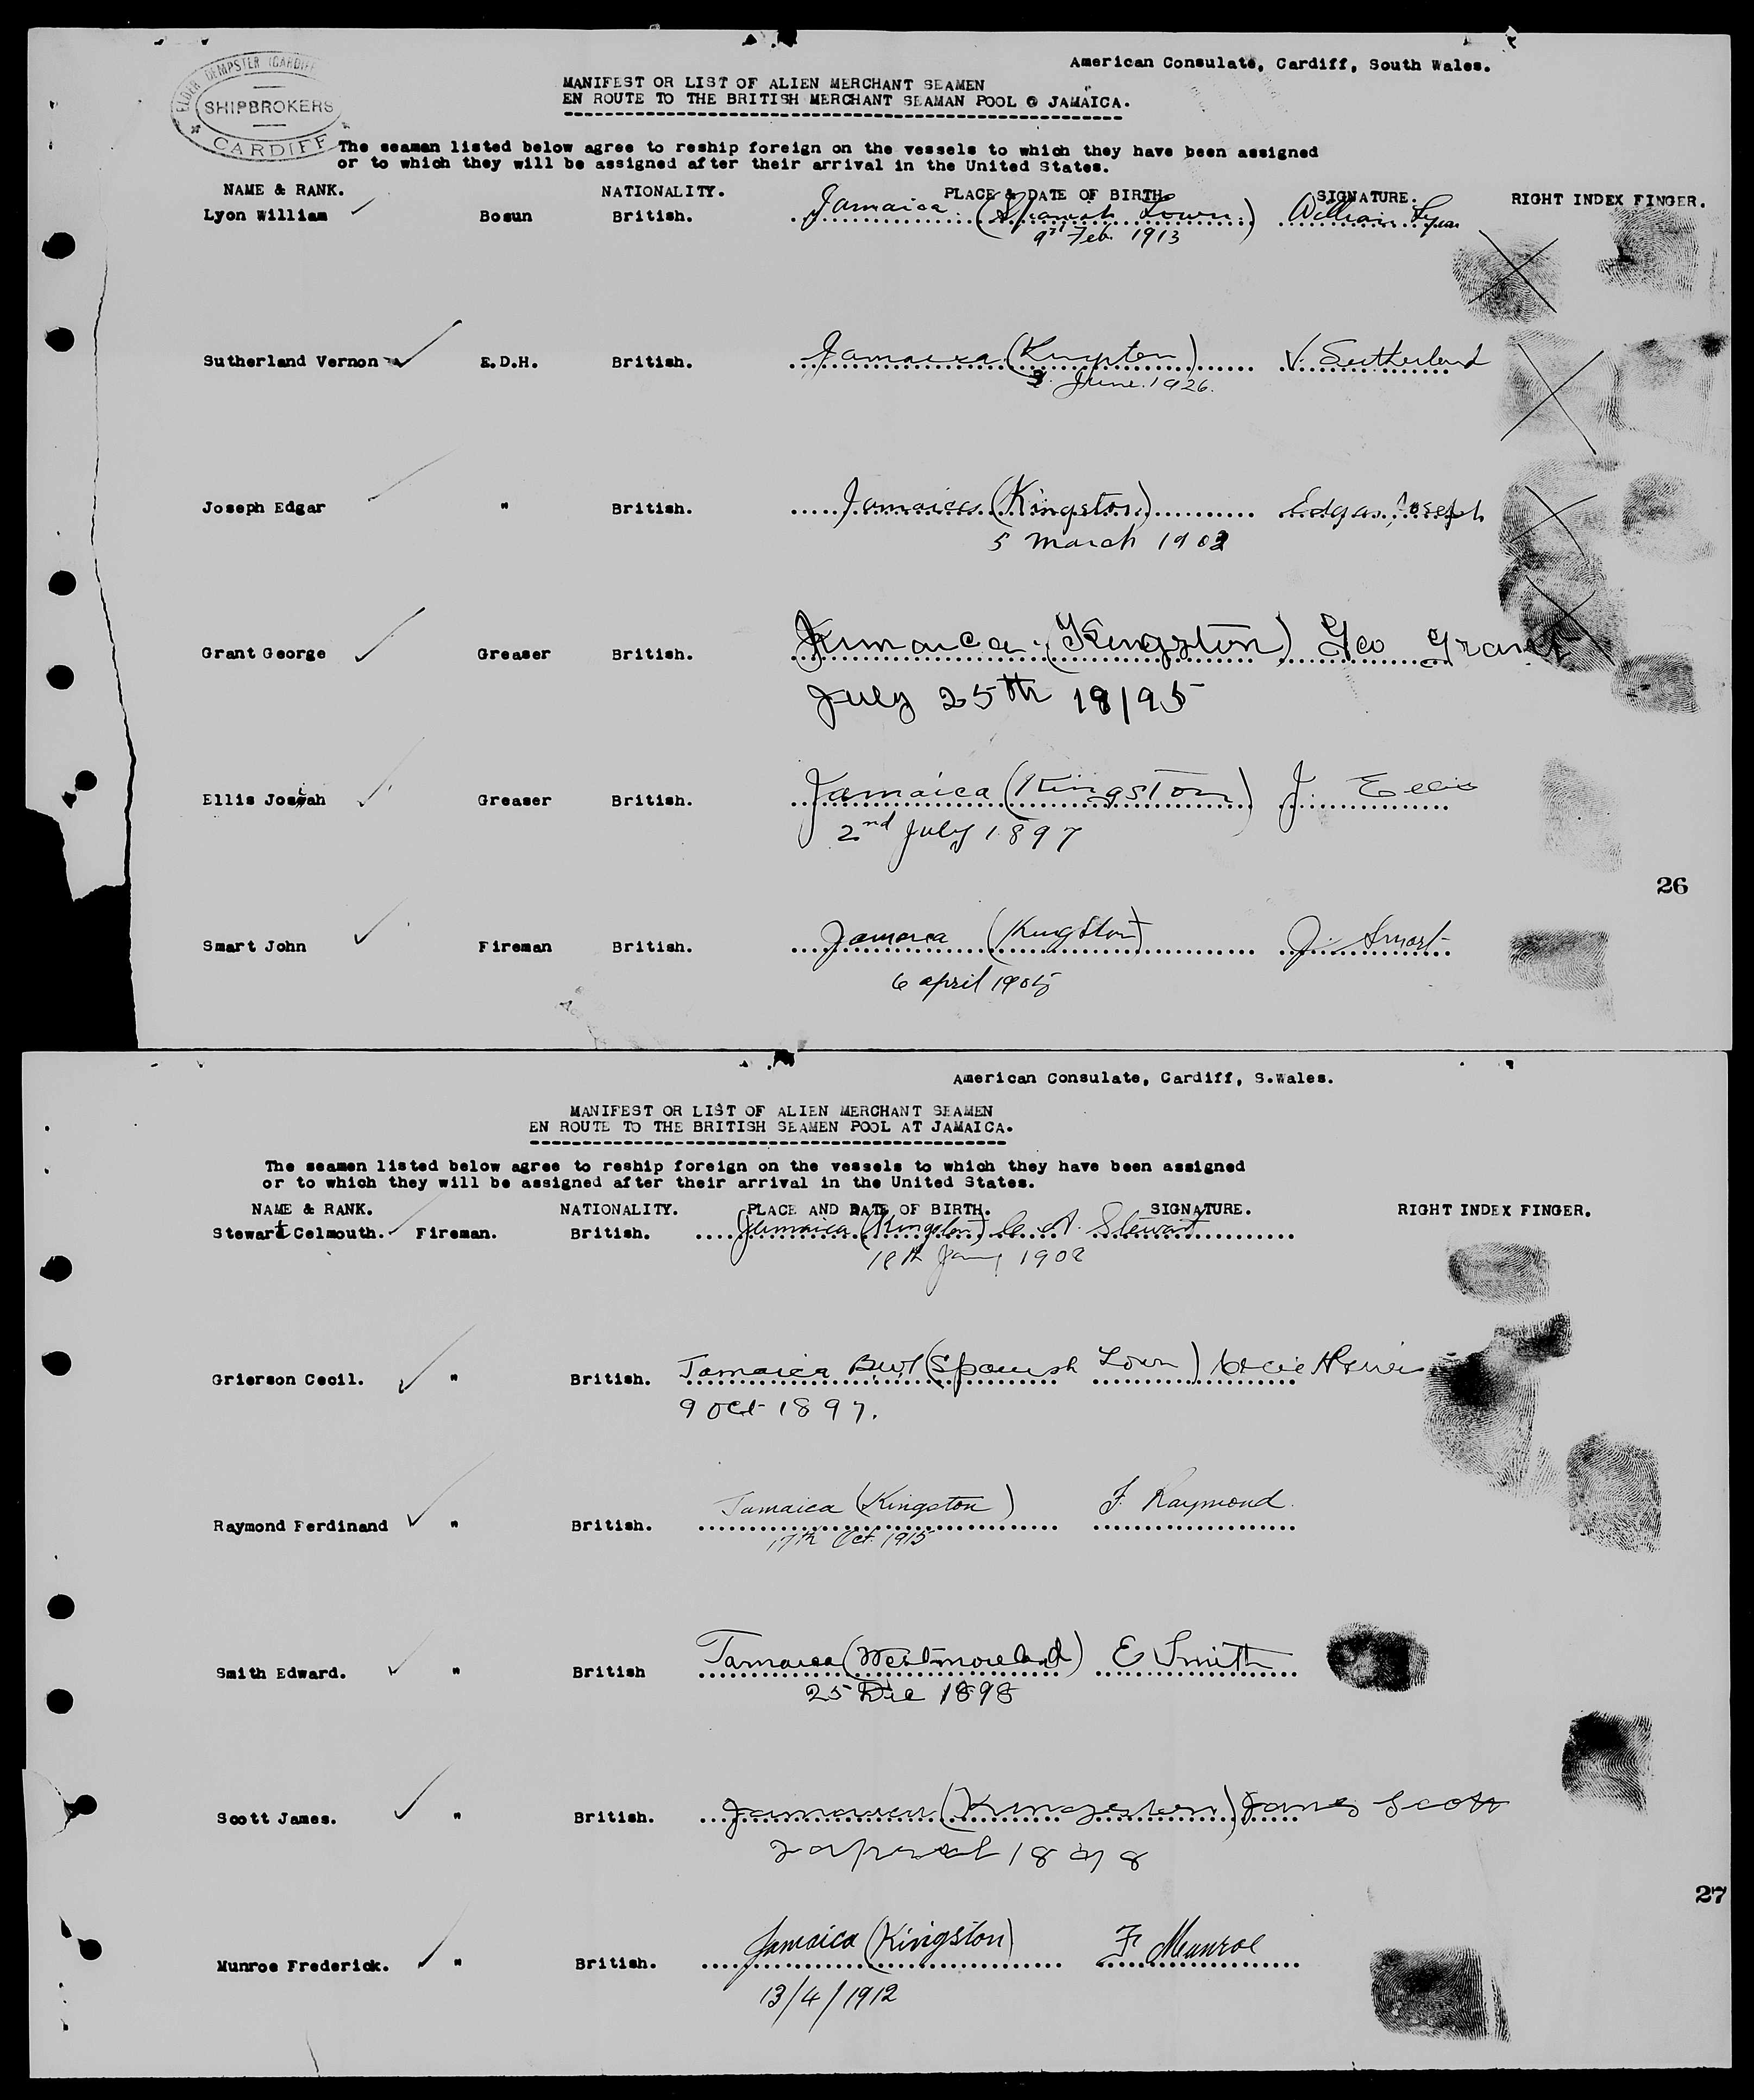 ELDER DEMPSTER (CARDIFF
SHIPBROKERS
CARDIFF
American Consulate, Cardiff, South Wales.
MANIFEST OR LIST OF ALIEN MERCHANT SEAMEN
EN ROUTE TO THE BRITISH MERCHANT SEAMAN POOL @ JAMAICA.
The seaman listed below agree to reship foreign on the vessels to which they have been assigned
or to which they will be assigned after their arrival in the United States.
NAME & RANK. NATIONALITY. PLACE & DATE OF BIRTH. SIGNATURE. RIGHT INDEX FINGER.
Lyon William Bosun British. Jamaica (Spanish Town) William Lyon
Feb. 1913
Sutherland Vernon E.D.H. British. Jamaica (Kingston) V. Sutherland
June 1926.
Joseph Edgar " British. Jamaica (Kingston) Edgar Joseph
5 March 1903
Grant George Greaser British. Jamaica (Kingston) Geo Grant
July 25th 18/95
Ellis Josiah Greaser British. Jamaica (Kingston) J. Ellis
2nd July 1897
26
Smart John Fireman British. Jamaica (Kingston) J. Smart
6 april 1905
American Consulate, Cardiff, S.Wales.
MANIFEST OR LIST OF ALIEN MERCHANT SEAMEN
EN ROUTE TO THE BRITISH SEAMEN POOL AT JAMAICA.
The seamen listed below agree to reship foreign on the vessels to which they have been assigned
or to which they will be assigned after their arrival in the United States.
NAME & RANK. NATIONALITY. PLACE AND DATE OF BIRTH. SIGNATURE. RIGHT INDEX FINGER.
Stewart Celmouth. Fireman. British. Jamaica (Kingston) C. A. Stewart
18th Jany 1902
Grierson Cecil. " British. Jamaica BWI (Spanish Town)
9 Oct 1897.
Raymond Ferdinand " British. Jamaica (Kingston) F. Raymond
17th Oct. 1915
Smith Edward. " British Jamaica (Westmoreland) E Smith
25 Dec 1898
Scott James. " British. Jamaica (Kingston) James Scott
2 april 1898
27
Munroe Frederick. " British. Jamaica (Kingston) F. Munroe
13/4/1912